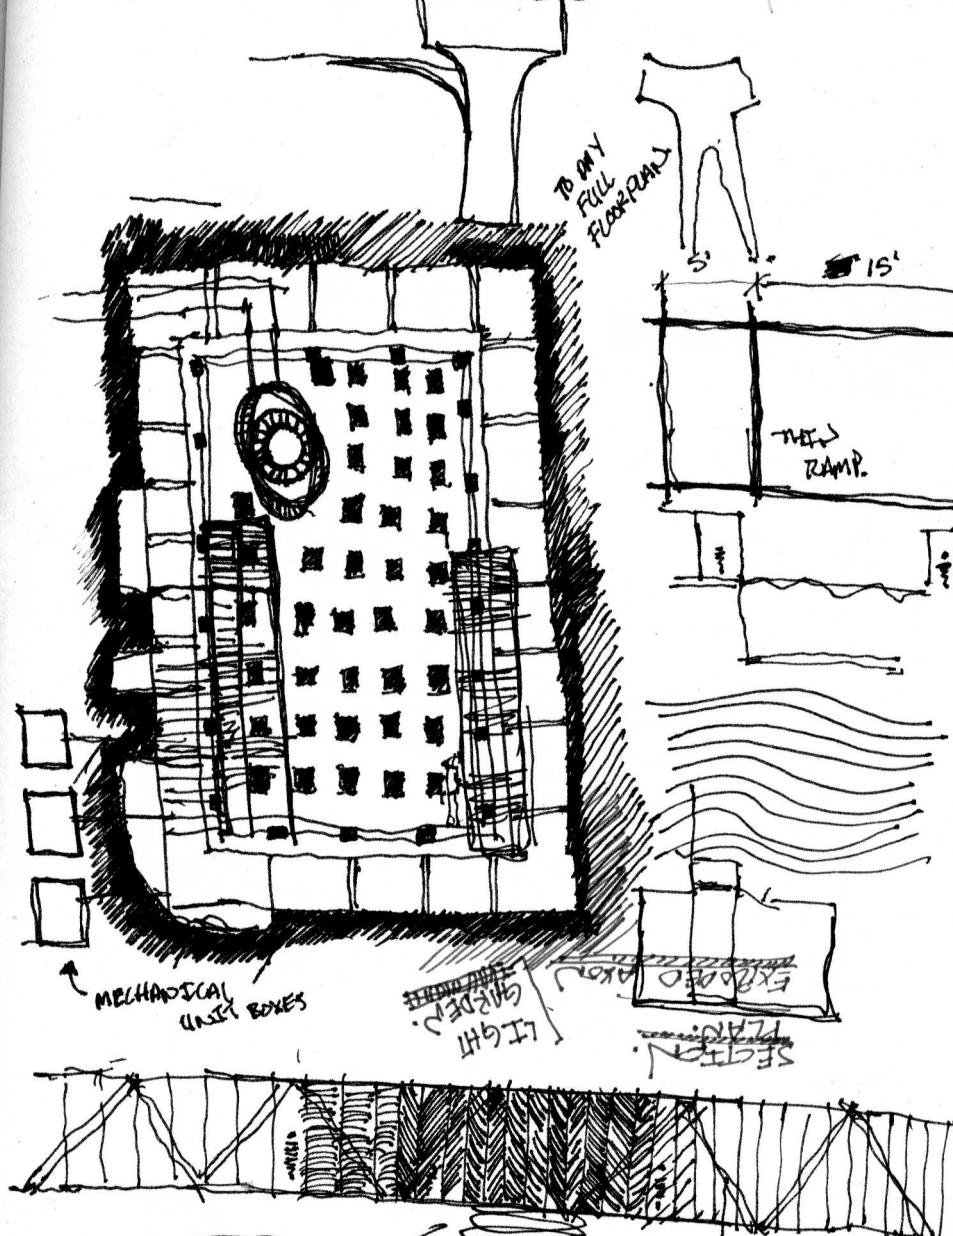 TO DAY
FULL
FLOORPLAN
5'
15'
THIN
RAMP.
MECHANICAL
UNIT BOXES
LIGHT
GARDEN.
EXPLODED AXON
SECTION.
PLAN.